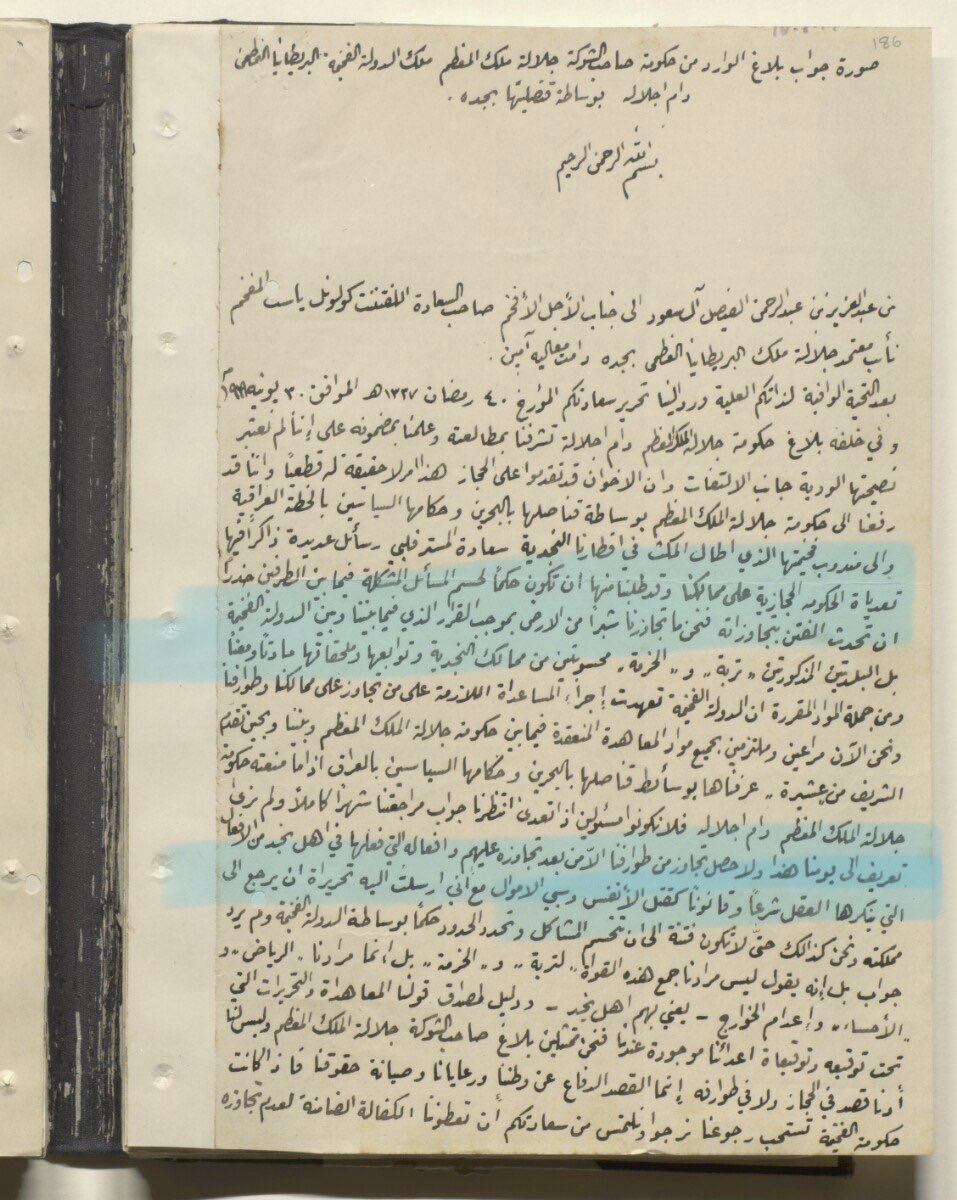 186
صورة جواب بلاغ الوارد من حكومة صاحب الشوكة جلالة ملك المعظم ملك الدولة الفخيمة البريطانيا العظمى
دام اجلاله بوساطة قنصليتها بجده .
بسم الله الرحمن الرحيم
من عبدالعزيز بن عبدالرحمن الفيصل آل سعود الى جناب الأجل الأفخم صاحب السعادة اللفتننت كولونل باست المفخم
نأب معتمد جلالة ملك البريطانيا العظمى بجده دامت معاليه آمين .
بعد التحية الوافية لذاتكم العلية ورد الينا تحرير سعادتكم المؤرخ ٤٠ رمضان ١٣٣٧هـ الموافق ٣٠ يونيه
وفي خلفه بلاغ حكومة جلالة الملك المعظم دام اجلالة تشرفنا بمطالعتة وعلمنا بمضمونه على إننا لم نعتبر
نصيحتها الودية جانب الالتفات وان الاخوان قد تقدموا على الحجاز هذا امر لا حقيقة له قطعياً واننا قد
رفعنا الى حكومة جلالة الملك المعظم بوساطة قناصلها بالبحرين وحكامها السياسين بالخطة العراقية
والى مندوب فخيمتها الذي اطال المكث في اقطارنا النجدية سعادة المستر فلبي رسائل عديدة ذاكراً فيها
تعدياة الحكومه الحجازية على ممالكنا وقد طلبنا منها ان تكون حكماً لحسم المسائل المشكلة فيما بين الطرفين حذراً
ان تحدث الفتن بتجاوزاته فنحن ما تجاوزنا شبراً من الارض بموجب القرار الذي فيما بيننا وبين الدولة الفخيمة
بل البلدتين المذكورتين " تربة " و " الخرمة " محسوبتين من ممالك النجدية وتوابعها وملحقاتها مادتاً ومعناً
ومن جملة المواد المقررة ان الدولة الفخيمة تعهدت بإجراء المساعداة اللازمة على من يتجاوز على ممالكنا وطوارفنا
ونحن الآن مراعين وملتزمين بجميع مواد المعاهدة المنعقدة فيما بين حكومة جلالة الملك المعظم وبيننا وبحين تقدم
الشريف من عشيرة " عرفناها بوسائط قناصلها بالبحرين وحكامها السياسين بالعراق اذا ما منعته حكومة
جلالة الملك المعظم دام اجلاله فلا نكونوا مسئولين اذا تعدى انتظرنا جواب مراجعتنا شهراً كاملاً ولم نرى
تعريف الى يومنا هذا ولا حصل تجاوز من طوارفنا الآمن بعد تجاوزه عليهم وافعاله التي فعلها في اهل نجد من الافعال
التي ينكرها العقل شرعاً وقانوناً كقتل الأنفس وسبي الاموال مع اني ارسلت اليه تحريراة ان يرجع الى
مملكته ونحن كذالك حتى لا تكون فتنة الى ان تنحسم المشاكل وتحدد الحدود حكماً بوساطة الدولة الفخيمة ولم يرد
جواب بل إنه يقول ليس مرادنا جمع هذه القواة " لتربة " و " الخرمة " بل انما مرادنا " الرياض " و
" الأحساء " واعدام الخوارج - يعني بهم اهل نجد - ودليل لمصداق قولنا المعاهداة والتحريرات التي
تحت توقيعه وتوقيعاة اعدائنا موجودة عندنا فنحن ممتثلين بلاغ صاحب الشوكة جلالة الملك المعظم وليس لنا
أدنا قصد في الحجاز ولا في طوارفه إنما القصد الدفاع عن وطننا ورعايانا وصيانة حقوقنا فاذا كانت
حكومة الفخيمة تستحب رجوعنا نرجوا ونلتمس من سعادتكم أن تعطوننا الكفالة الضامنة لعدم تجاوزه